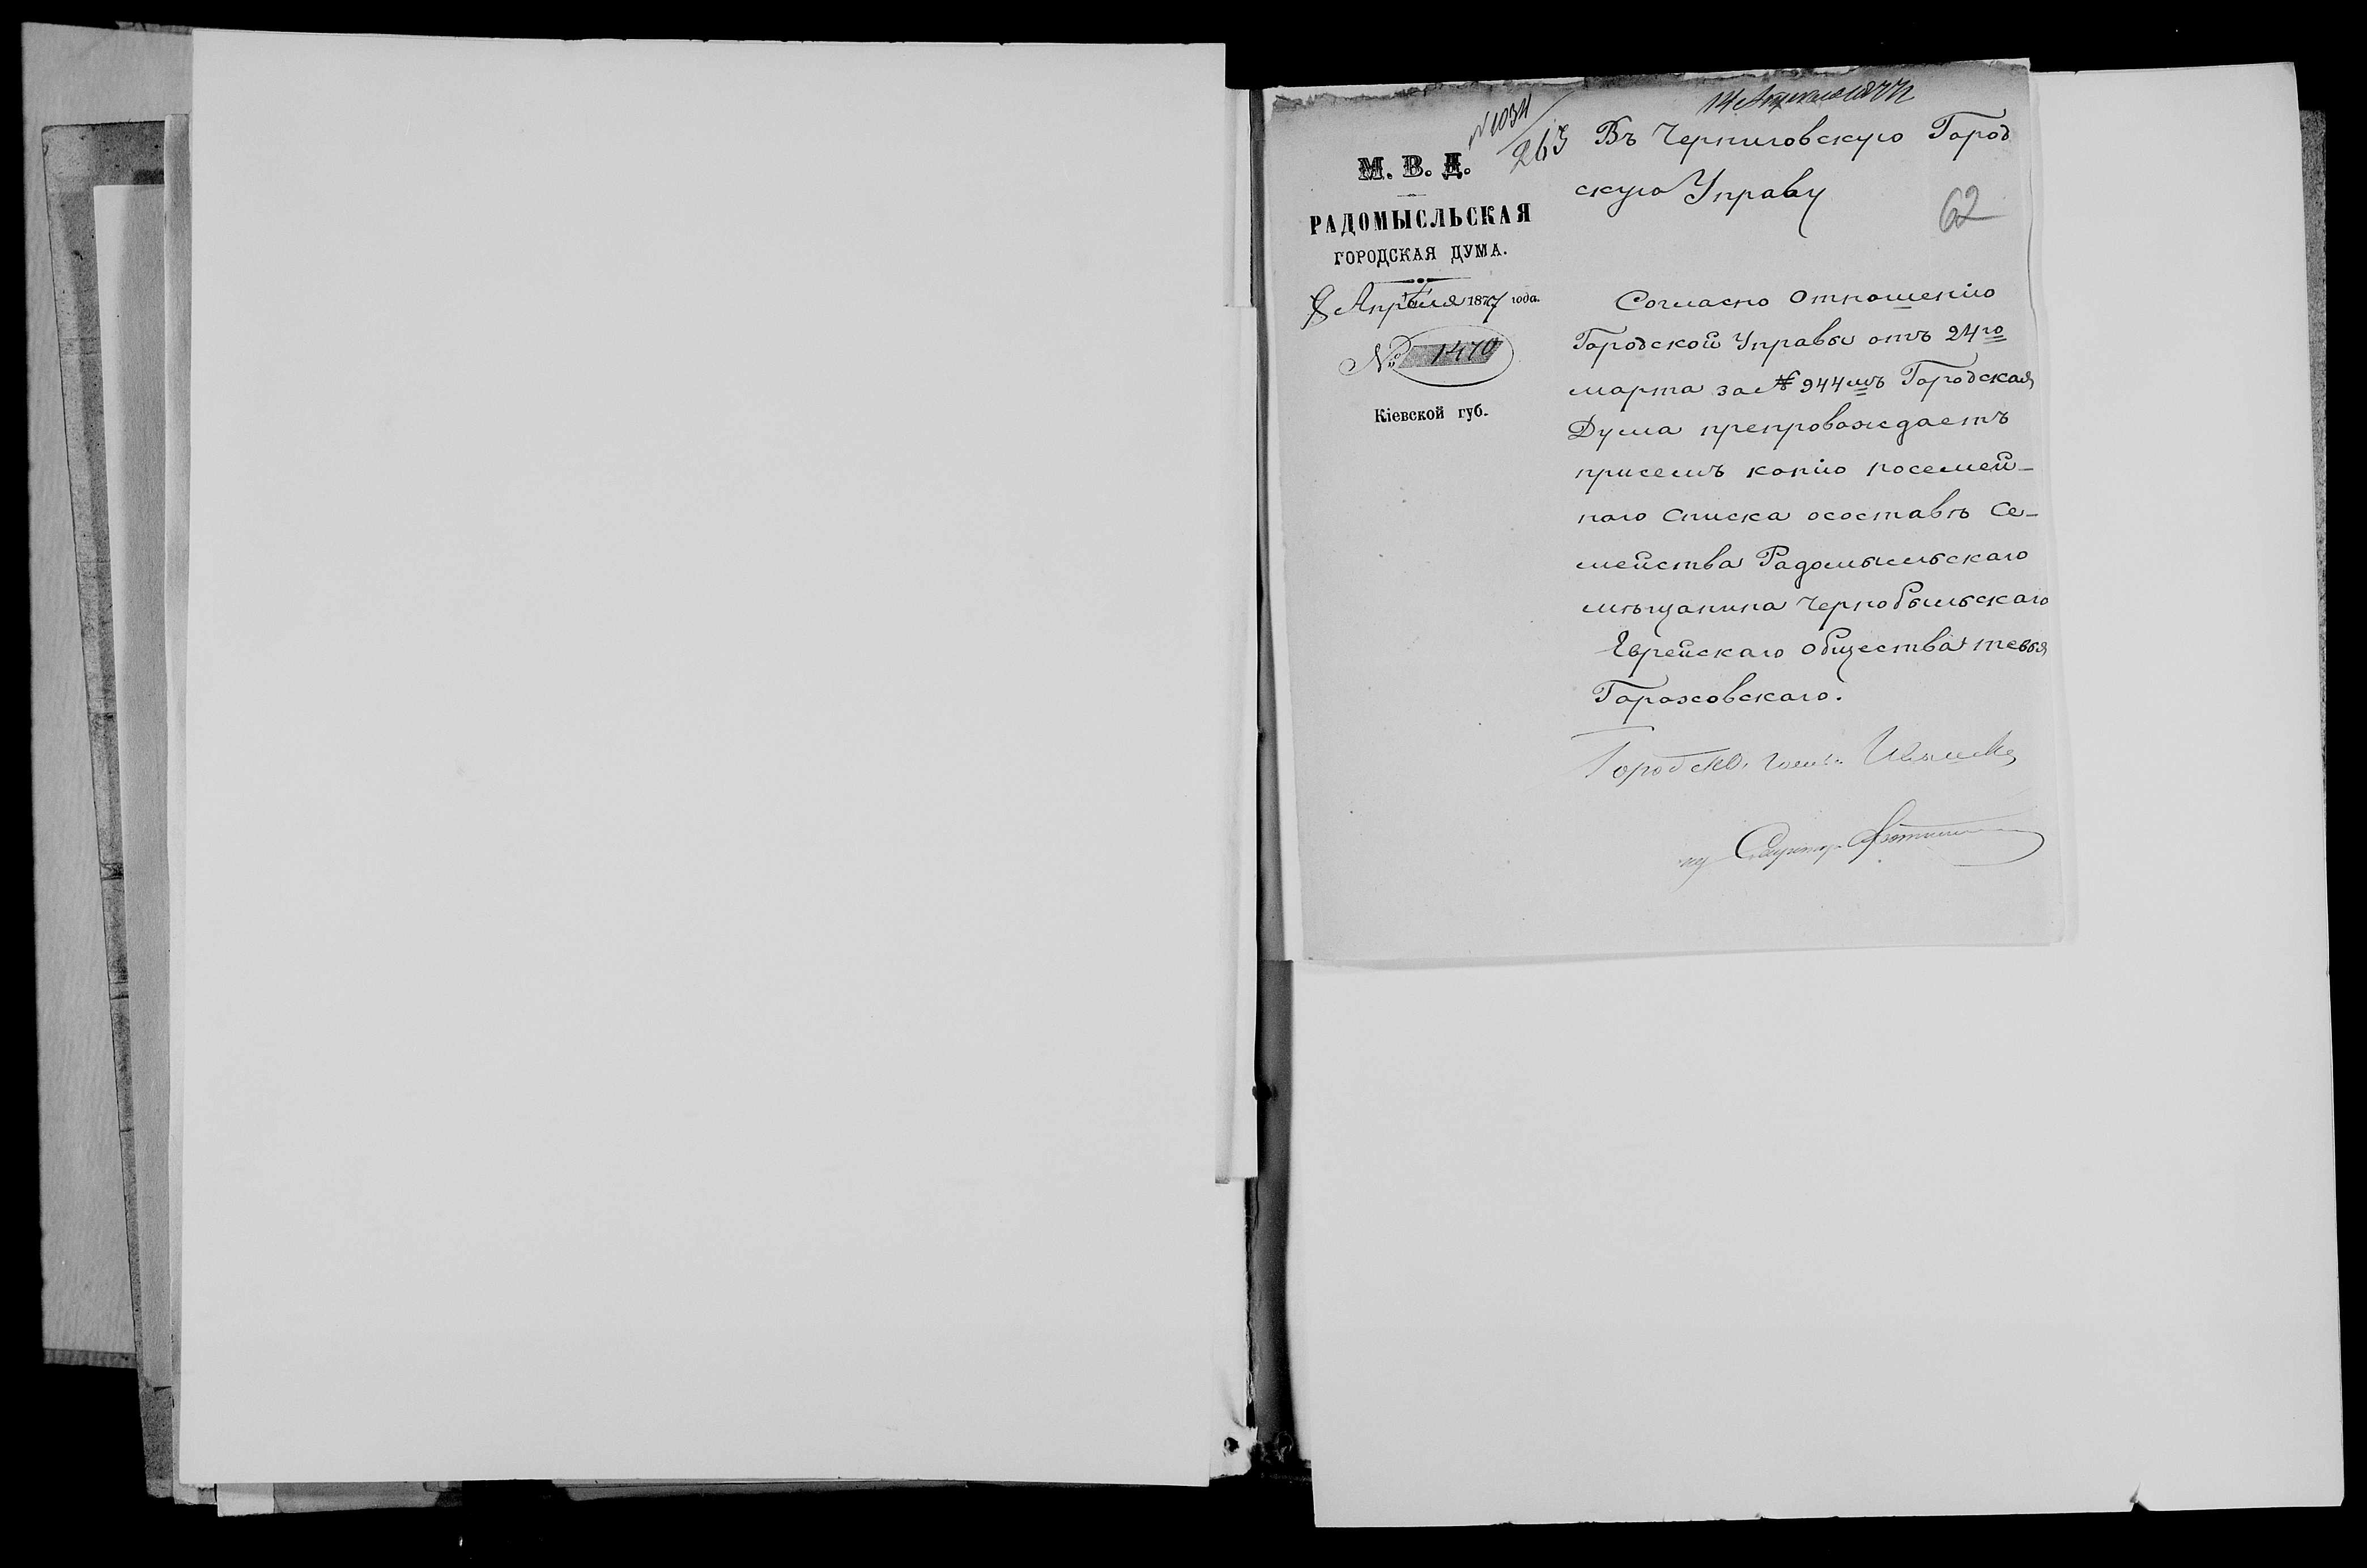 14 Апреля 1877
№ 1034
263
М. В. Д.
РАДОМЫСЛЬСКАЯ
ГОРОДСКАЯ ДУМА.
8 Апрѣля 1877 года.
№ 1470
Кіевской губ.
Въ Черниговскую Город
скую Управу
62
Согласно Отношенію
Городской Управы отъ 24го
марта за № 944мъ Городская
Дума препровождаетъ
присемъ копію посемей-
наго Списка осоставѣ Се-
мейства Радомысльскаго
мѣщанина Чернобыльскаго
Еврейскаго Общества тевья
Гороховскаго.
Городской
Секретарь